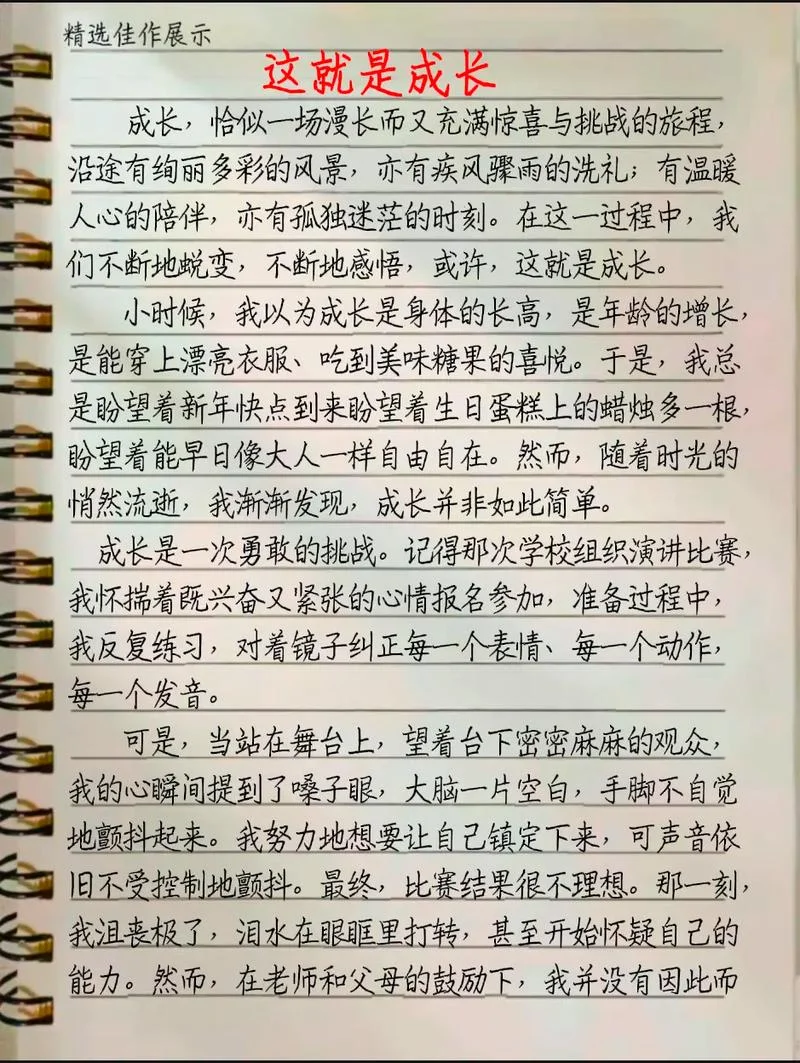 精选佳作展示
这就是成长
成长，恰似一场漫长而又充满惊喜与挑战的旅程，
沿途有绚丽多彩的风景，亦有疾风骤雨的洗礼；有温暖
人心的陪伴，亦有孤独迷茫的时刻。在这一过程中，我
们不断地蜕变，不断地感悟，或许，这就是成长。
小时候，我以为成长是身体的长高，是年龄的增长，
是能穿上漂亮衣服、吃到美味糖果的喜悦。于是，我总
是盼望着新年快点到来盼望着生日蛋糕上的蜡烛多一根，
盼望着能早日像大人一样自由自在。然而，随着时光的
悄然流逝，我渐渐发现，成长并非如此简单。
成长是一次勇敢的挑战。记得那次学校组织演讲比赛，
我怀揣着既兴奋又紧张的心情报名参加，准备过程中，
我反复练习，对着镜子纠正每一个表情、每一个动作，
每一个发音。
可是，当站在舞台上，望着台下密密麻麻的观众，
我的心瞬间提到了嗓子眼，大脑一片空白，手脚不自觉
地颤抖起来。我努力地想要让自己镇定下来，可声音依
旧不受控制地颤抖。最终，比赛结果很不理想。那一刻，
我沮丧极了，泪水在眼眶里打转，甚至开始怀疑自己的
能力。然而，在老师和父母的鼓励下，我并没有因此而